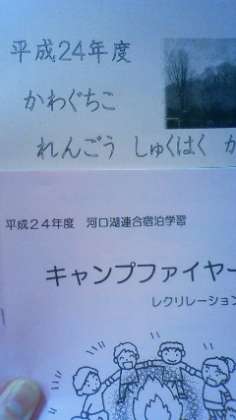 平成24年度
かわぐちこ
れんごう しゅくはく
平成24年度 河口湖連合宿泊学習
キャンプファイヤー
レクリレーション